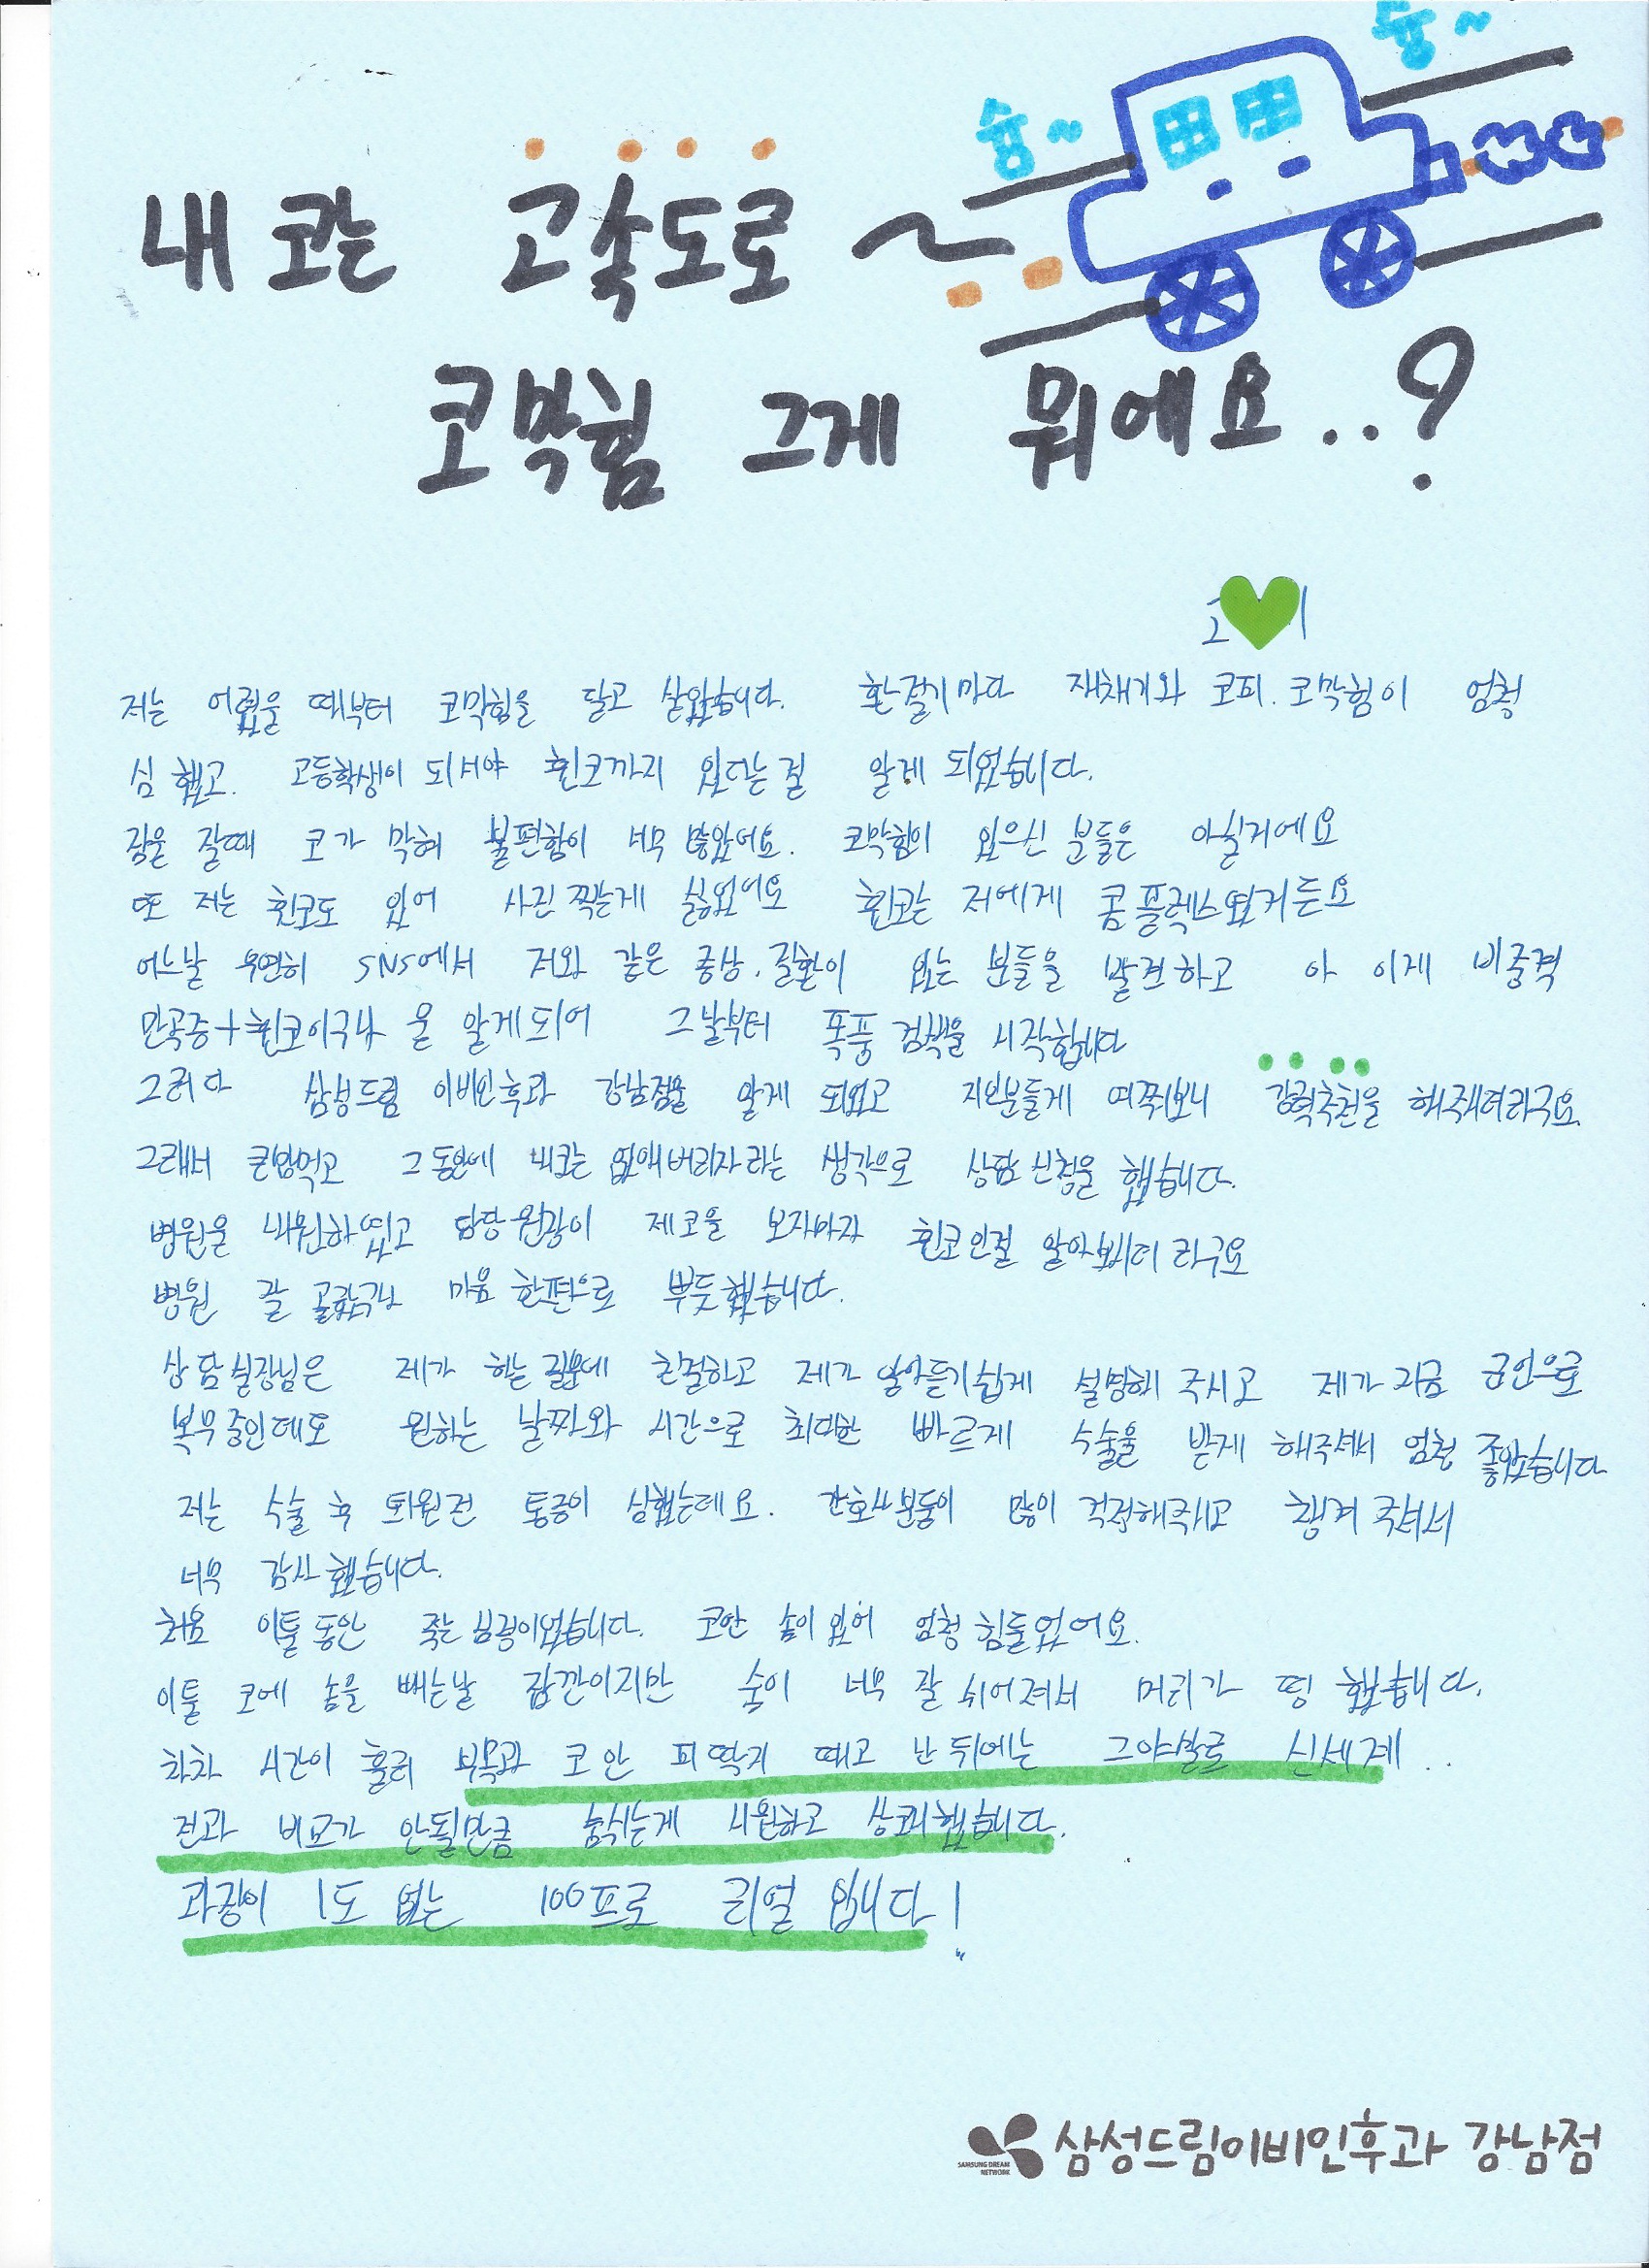 슝~
슝~
내 코는 고속도로
코막힘 그게 뭐에요..?
저는 어렸을 때부터 코막힘을 달고 살았습니다. 환절기마다 재채기와 코피. 코막힘이 엄청
심했고. 고등학생이 되서야 휜코까지 있다는걸 알게 되었습니다.
잠을 잘때 코가 막혀 불편함이 너무 많았어요. 코막힘이 있으신 분들은 아실거에요
또 저는 휜코도 있어 사진 찍는게 싫었어요 휜코는 저에게 콤플렉스였거든요
어느날 우연히 SNS에서 저와 같은 증상.질환이 있는 분들을 발견하고 아 이게 비중격
만곡증+휜코이구나 을 알게되어 그날부터 폭풍 검색을 시작합니다
그러다 삼성드림 이비인후과 강남점을 알게 되었고 지인분들게 여쭤보니 강력추천을 해주셔더라구요.
그래서 큰맘먹고 그 동안에 내코는 없애버리자라는 생각으로 상담신청을 했습니다.
병원을 내원하였고 담당원장이 제코를 보자마자 휜코인걸 알아보시더라구요
병원 잘 골랐구나 마음 한편으로 뿌듯했습니다.
상담실장님은 제가 하는 질문에 친절하고 제가 알아듣기쉽게 설명해 주시고 제가 지금 군인으로
복무중인데도 원하는 날짜와 시간으로 최대한 빠르게 수술을 받게 해주셔서 엄청 좋았습니다
저는 수술 후 퇴원전 통증이 심했는데요. 간호사분들이 많이 걱정해주시고 챙겨주셔서
너무 감사했습니다.
처음 이틀동안 죽는심정이었습니다. 코안 솜이 있어 엄청 힘들었어요.
이틀 코에 솜을 빼는날 잠깐이지만 숨이 너무 잘 쉬어져서 머리가 띵 했습니다.
차차 시간이 흘러 부목과 코안 피딱지 떼고 난 뒤에는 그야말로 신세계..
전과 비교가 안될만큼 숨쉬는게 시원하고 상쾌했습니다.
과장이 1도 없는 100프로 리얼 입니다!
SAMSUNG DREAM NETWORK 삼성드림이비인후과 강남점